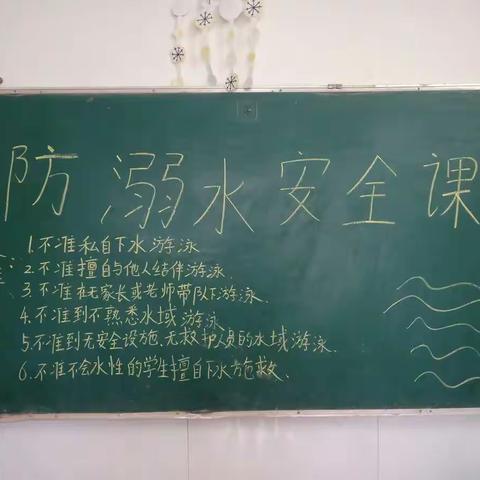 防溺水安全课
1.不准私自下水游泳
2.不准擅自与他人结伴游泳.
3.不准在无家长或老师带队下游泳.
4.不准到不熟悉水域游泳
5.不准到无安全设施.无救护人员的水域游泳.
6.不准不会水性的学生擅自下水施救.